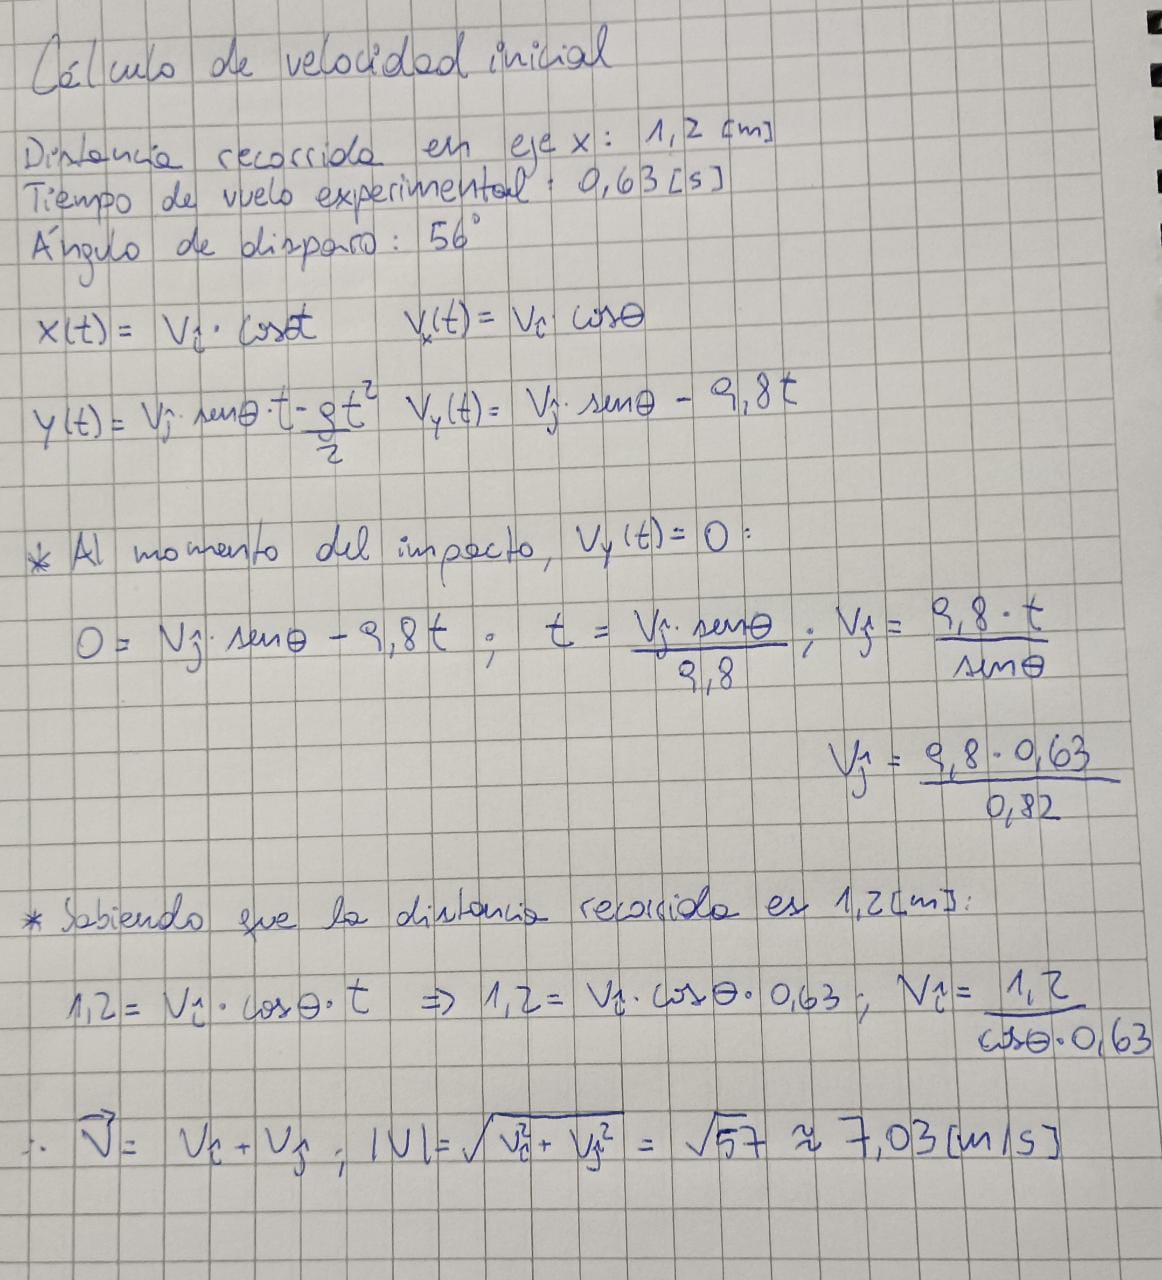 Cálculo de velocidad inicial
Distancia recorrida en eje x: 1,2 [m]
Tiempo de vuelo experimental: 0,63 [s]
Ángulo de disparo: 56°
x(t) = Vî · cosθt    Vx(t) = Vî cosθ
y(t) = Vĵ · senθ · t - gt²/2    Vy(t) = Vĵ · senθ - 9,8t
* Al momento del impacto, Vy(t) = 0:
0 = Vĵ · senθ - 9,8t ; t = Vĵ · senθ / 9,8 ; Vĵ = 9,8 · t / senθ
Vĵ = 9,8 · 0,63 / 0,82
* Sabiendo que la distancia recorrida es 1,2 [m]:
1,2 = Vî · cosθ · t ⇒ 1,2 = Vî · cosθ · 0,63 ; Vî = 1,2 / cosθ · 0,63
∴ V⃗ = Vî + Vĵ ; |V| = √(Vî² + Vĵ²) = √57 ≈ 7,03 [m/s]